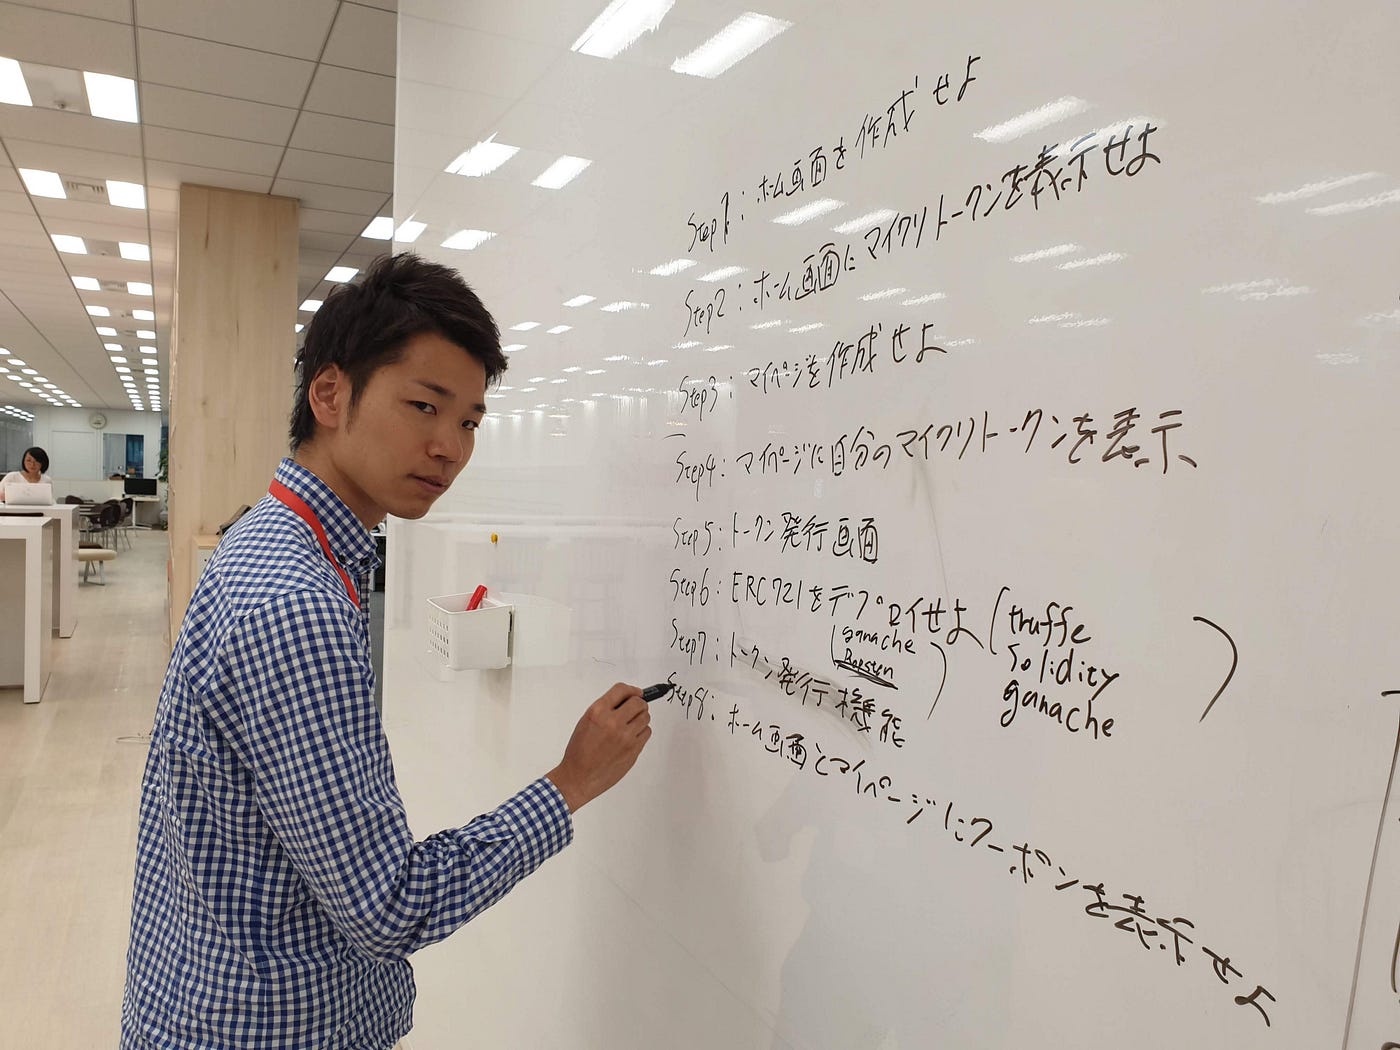 Step1:ホーム画面を作成せよ
Step2:ホーム画面にマイクリトークンを表示せよ
Step3:マイページを作成せよ
Step4:マイページに自分のマイクリトークンを表示、
Step5:トークン発行画面
Step6:ERC721をデプロイせよ(truffe
solidity
ganache)
(ganache
Ropsten)
Step7:トークン発行機能
Step8:ホーム画面とマイページにクーポンを表示せよ